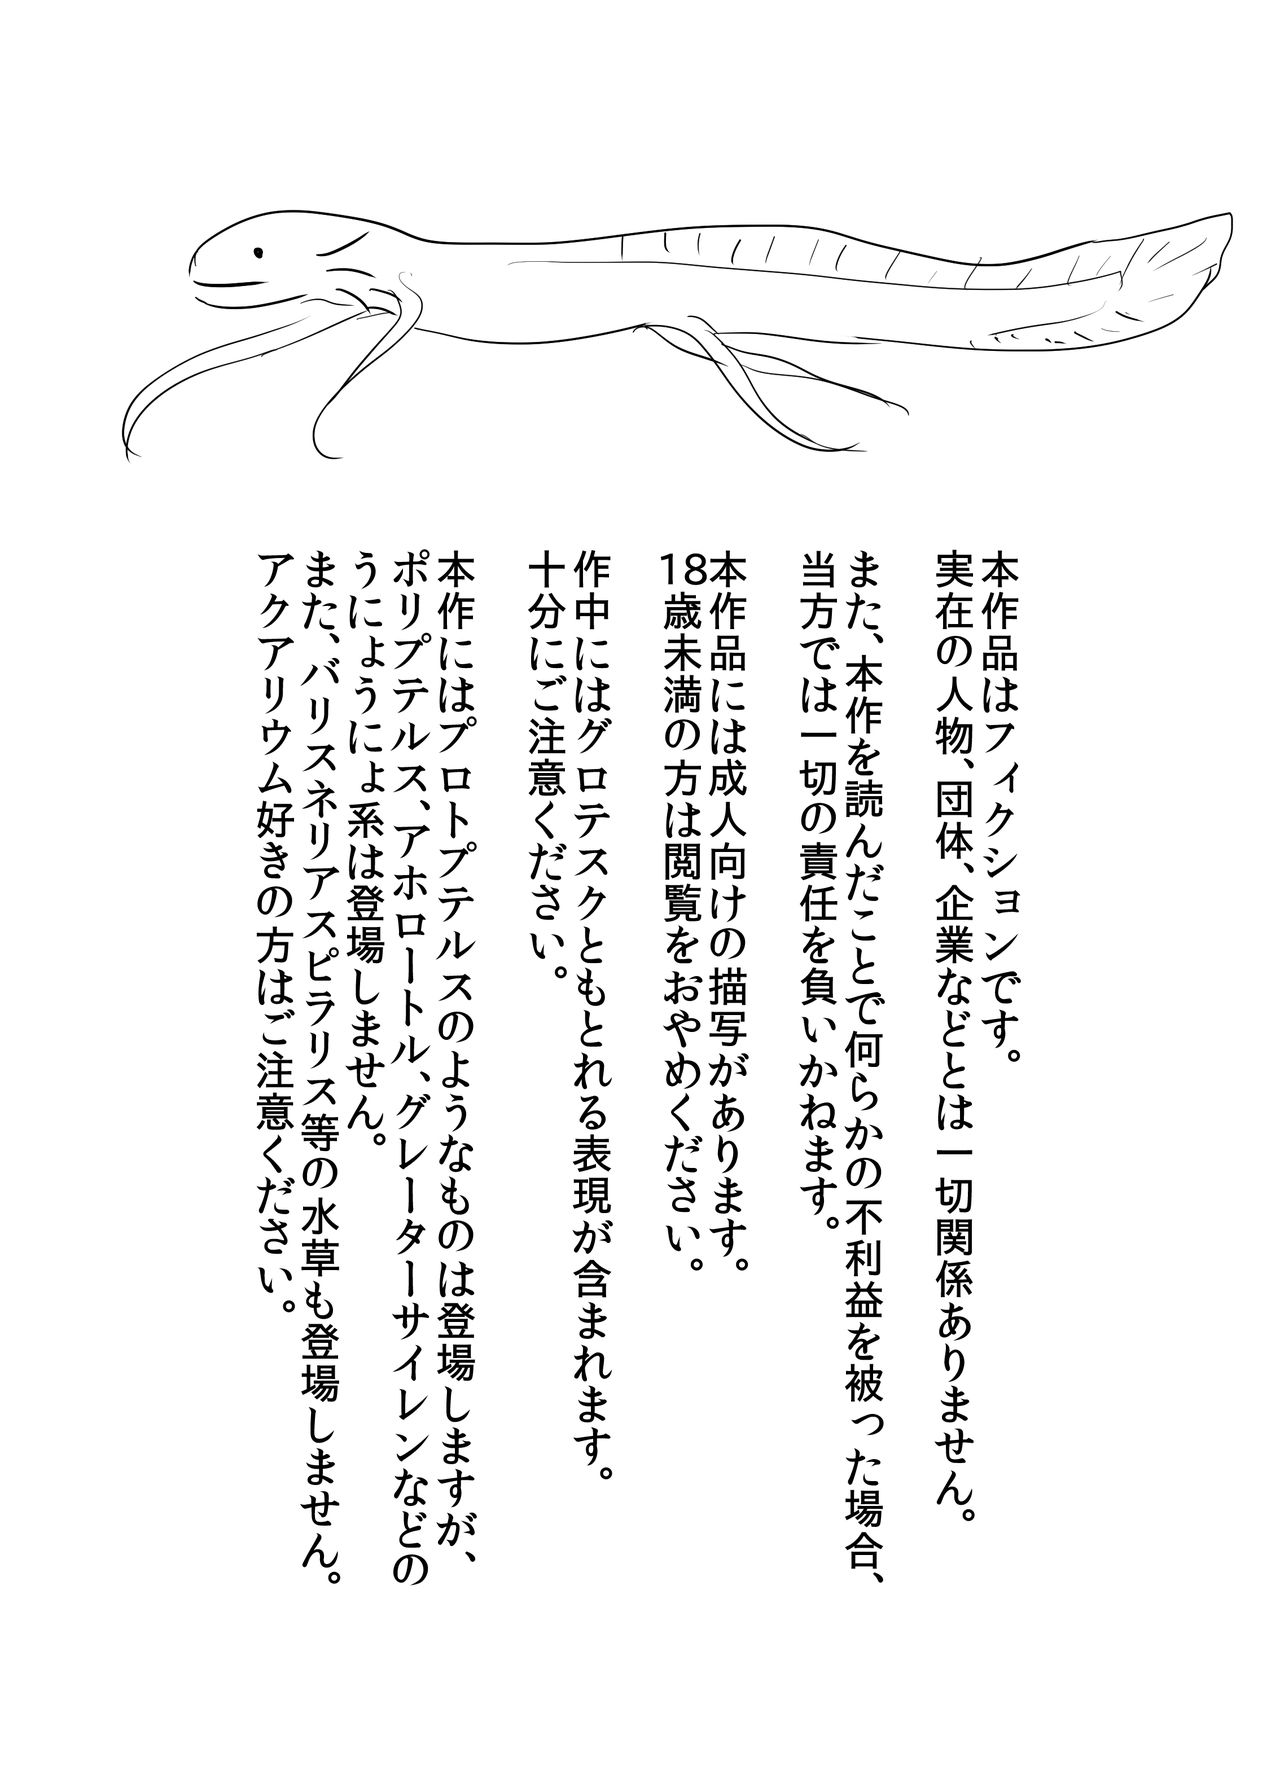 本作品はフィクションです。
実在の人物、団体、企業などとは一切関係ありません。
また、本作を読んだことで何らかの不利益を被った場合、
当方では一切の責任を負いかねます。
本作品には成人向けの描写があります。
18歳未満の方は閲覧をおやめください。
作中にはグロテスクともとれる表現が含まれます。
十分にご注意ください。
本作にはプロトプテルスのようなものは登場しますが、
ポリプテルス、アホロートル、グレーターサイレンなどの
うにょうにょ系は登場しません。
また、バリスネリアスピラリス等の水草も登場しません。
アクアリウム好きの方はご注意ください。